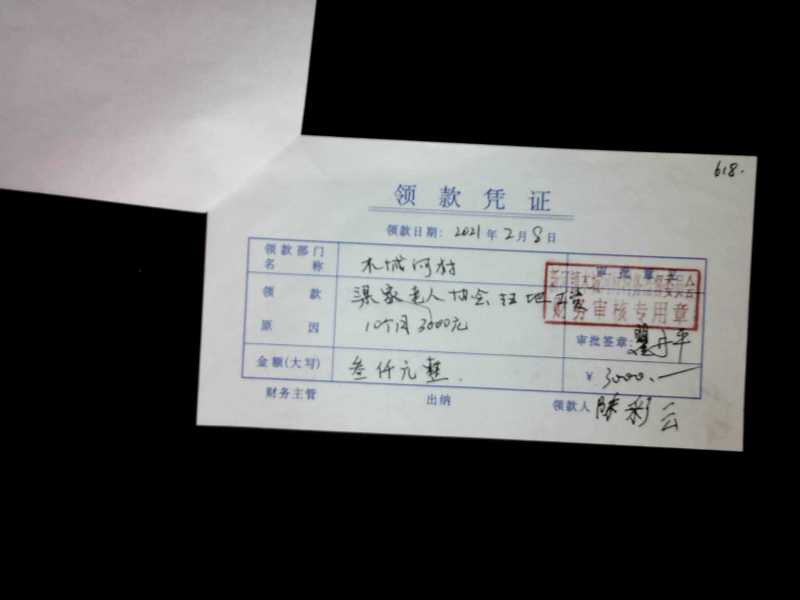 618.
领款凭证
领款日期: 2021年2月8日
领款部门名称 木城河村
领款原因 老人协会 扫地工资
10个月3000元
财务审核专用章
审批签章:
金额(大写) 叁仟元整. ¥ 3000.—
财务主管 出纳 领款人 陈彩云